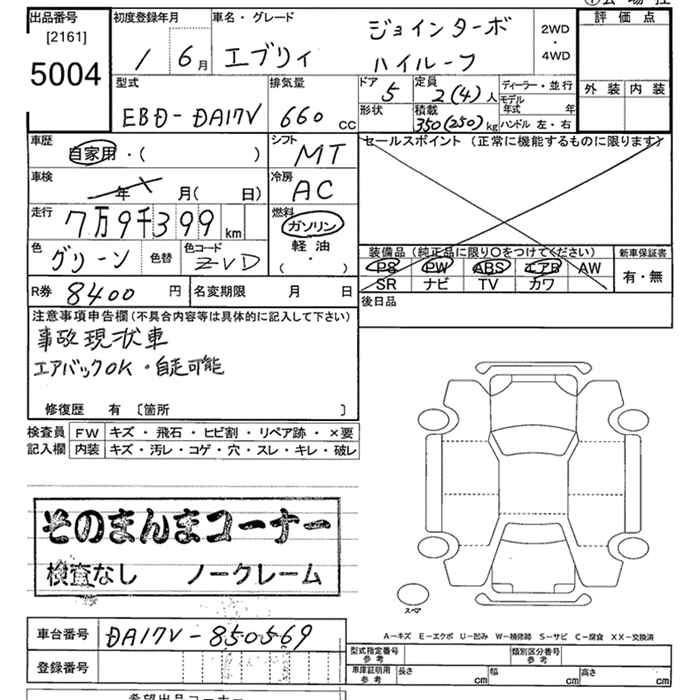 出品番号
[2161]
5004
初度登録年月
1 6 月
車名・グレード
エブリィ ジョインターボ
ハイルーフ
2WD
・
4WD
評価点
外装 内装
型式
EBD-DA17V
排気量
660 CC
ドア
5
形状
定員
2(4)人
積載
350(250)kg
ディーラー・並行
モデル年式 年
ハンドル 左・右
車歴
自家用・( )
シフト
MT
車検
年 月( 日)
冷房
AC
走行
7万9千399 km
燃料
ガソリン
軽油
( ・ )
色
グリーン
色替
色コード
ZVD
R券 8400 円
名変期限 月 日
セールスポイント (正常に機能するものに限ります)
装備品 (純正品に限り○をつけてください)
PS PW ABS エアB AW
SR ナビ TV カワ
新車保証書
有・無
後日品
注意事項申告欄(不具合内容等は具体的に記入して下さい)
事故現状車
エアバックOK・自走可能
修復歴 有 〔箇所 〕
検査員 FW キズ・飛石・ヒビ割・リペア跡・×要
記入欄 内装 キズ・汚レ・コゲ・穴・スレ・キレ・破レ
そのまんまコーナー
検査なし ノークレーム
スペア
A-キズ E-エクボ U-凹み W-補修跡 S-サビ C-腐食 XX-交換済
車台番号 DA17V-850569
登録番号
型式指定番号
参考
類別区分番号
参考
車庫証明用
参考
長さ cm 幅 cm 高さ cm
希望出品コーナー